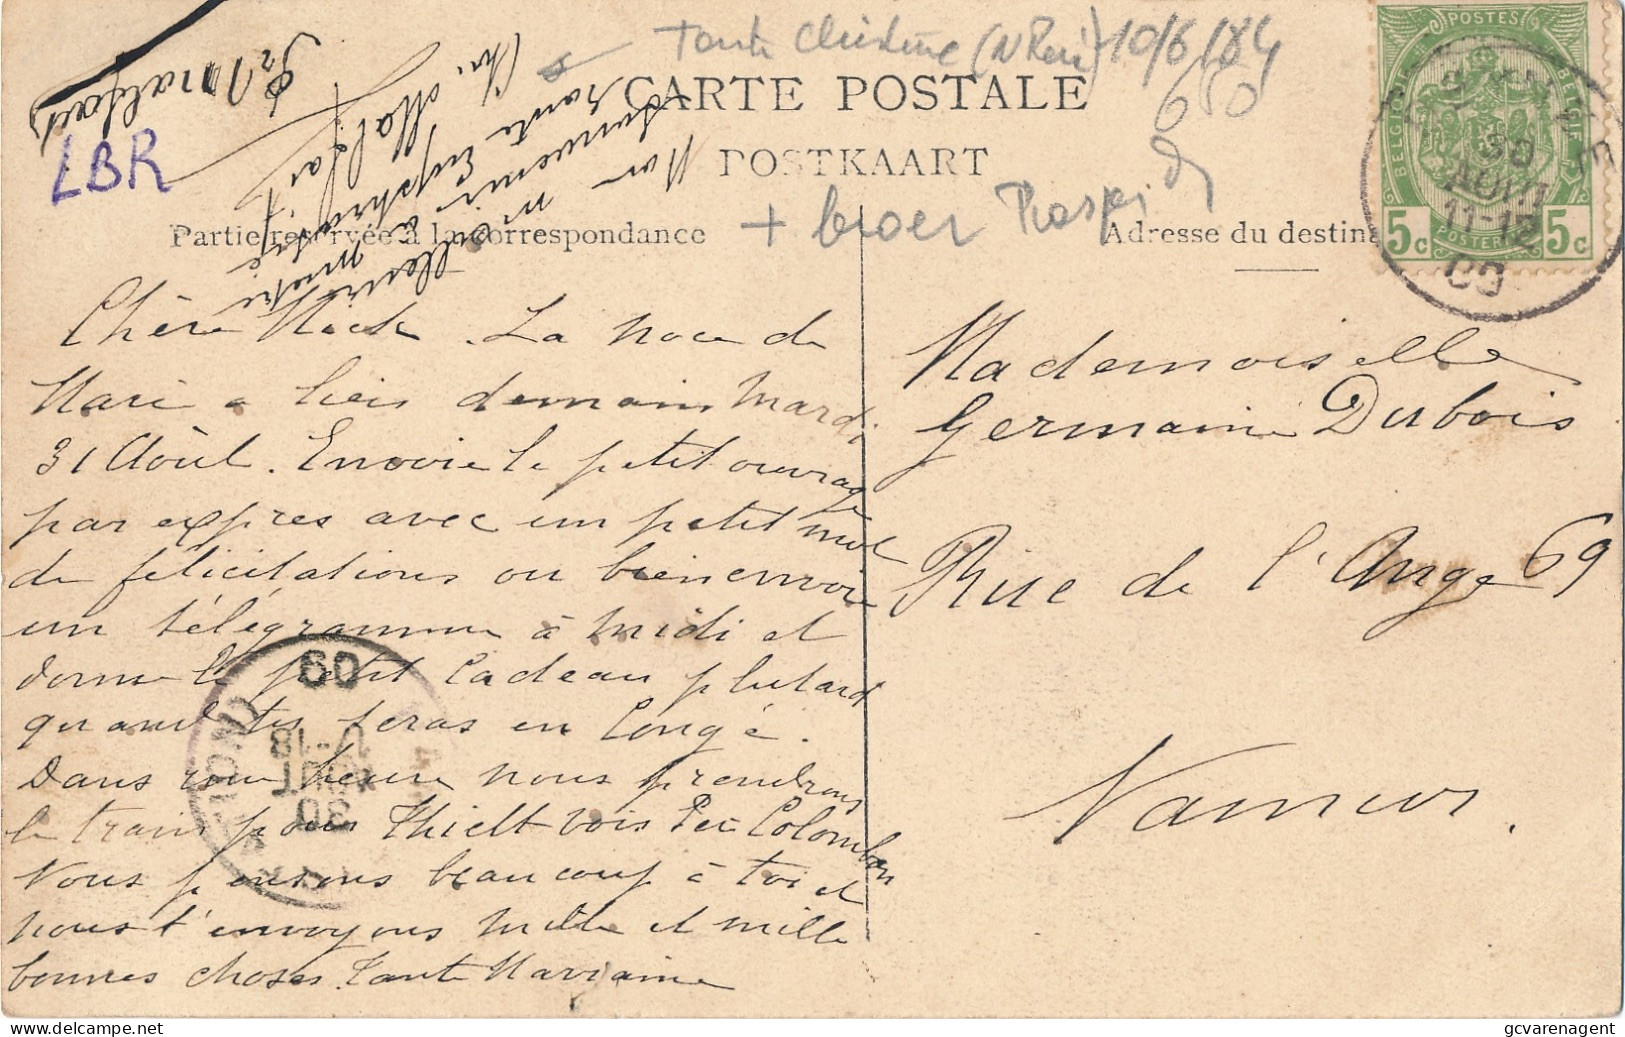 Tante Christine (N Reu) 10/6/84
CARTE POSTALE
650
POSTKAART
+ broer
LBR
Partie réservée à la correspondance
Adresse du destina
POSTES
BELGIQUE
BELGIE
5c POSTERIJEN 5c
30
AOUT
11-12
09
Mon
meilleur
souvenir à notre
tante Euphrasie
Chère . La noce de
Mari a lieu demain Mardi
31 Août. Envoie le petit ouvrage
par expres avec un petit mot
de félicitations ou bien envoie
un télégramme à midi et
donne le petit Cadeau plutard
quand tu seras en Congé.
Dans une heure nous prendrons
le train pour Thielt vois Per Colomban
Nous pensons beaucoup à toi et
nous t'envoyons mille et mille
bonnes choses. Tante Mariaine
09
30
Mademoiselle
Germaine Dubois
Rue de l'Ange 69
Namur.
gcvarenagent